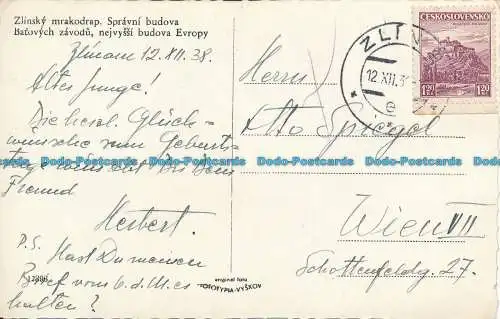 Zlínský mrakodrap. Správní budova
Baťových závodů, nejvyšší budova Evropy
Zlínam 12.XII.38.
Altes Junge!
Die herzl. Glück-
wünsche zum Geburts-
tag wünscht Dir Dein
Freund
Herbert.
P.S. Hast Du meinen
Brief vom 6. d. M. er-
halten?
17898
original foto
FOTOTYPIA-VYŠKOV
ČESKOSLOVENSKO
1·20 1·20
ZLÍN
12.XII.3
Herrn
Otto Spiegel
Wien VII
Schottenfeldg. 27.
Dodo-Postcards Dodo-Postcards Dodo-Postcards Dodo-Postcards
Dodo-Postcards Dodo-Postcards Dodo-Postcards Dodo-Postcards